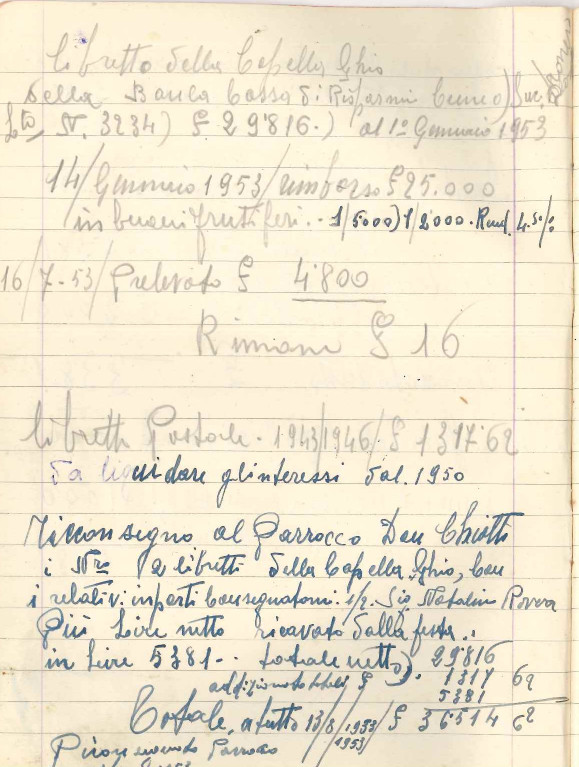 libretto della Capella Ghio
della Banca Cassa di Risparmi Cuneo) Suc.
N. 3234) £. 29'816.) al 1º Gennaio 1953
14/Gennaio 1953/rimborso £ 25.000
in buoni fruttiferi.. 1/5000) 1/2000. Rend. 4.50%
16/7-53/Prelevato £ 4'800
Rimane £ 16
libretto Postale. 1943/1946/£ 1317'62
Da liquidare gl'interessi dal. 1950
Riconsegno al Parroco Don Chiotti
i Nro 2 libretti della Capella, Ghio, con
i relativi importi consegnatomi Sig. Natalin Rovera
Più Lire netto ricavato dalla festa..
in Lire 5381.. totale netto). 29'816
addizionato totali £ 1317 62
5381
Totale, a tutto 13/8/1953/£ 36514 62
1953)
Parroco